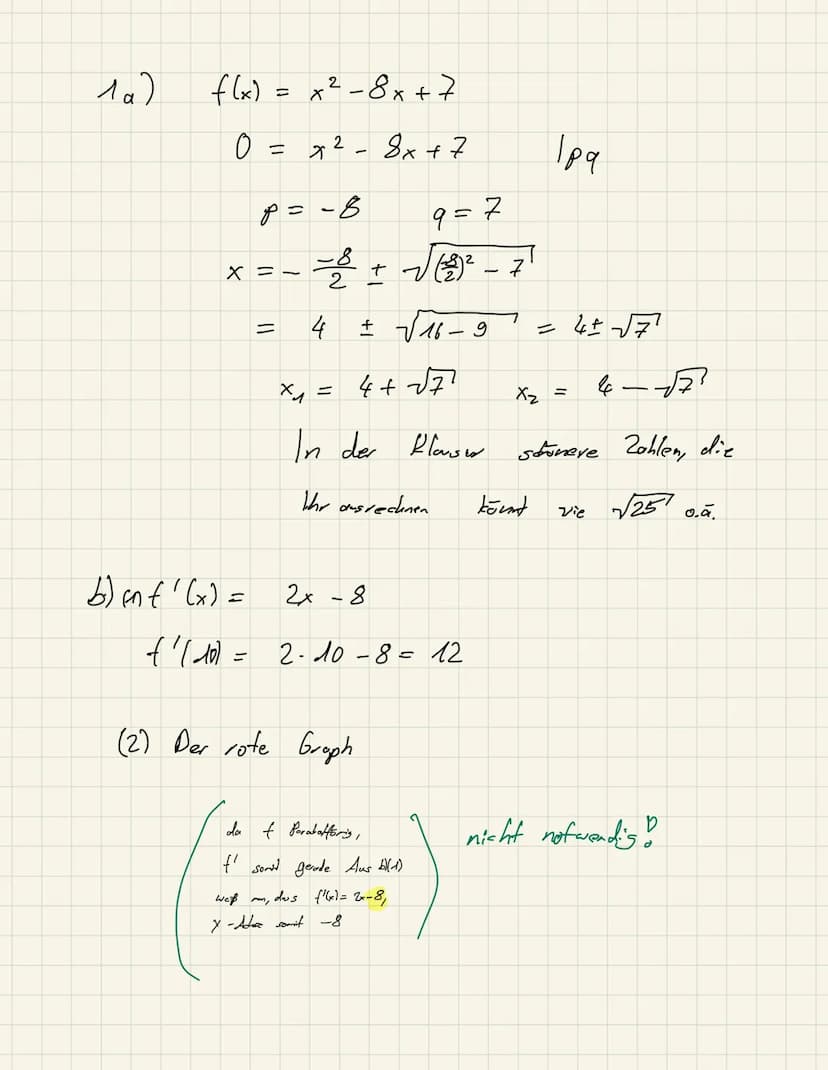 1a) f(x) = x² - 8x + 7
0 = x² - 8x + 7 |pq
p = -8 q = 7
x = - -8/2 ± √((-8/2)² - 7)
= 4 ± √(16 - 9) = 4 ± √7
x₁ = 4 + √7 x₂ = 4 - √7
In der Klausur Zahlen, die
Ihr ausrechnen könnt wie √25 o.ä.
b) (1) f'(x) = 2x - 8
f'(10) = 2 · 10 - 8 = 12
(2) Der rote Graph
(da f Parabelförmig,
f' somit gerade Aus b)(1)
weiß m, dass f'(x) = 2x-8,
y - somit -8)
nicht notwendig!